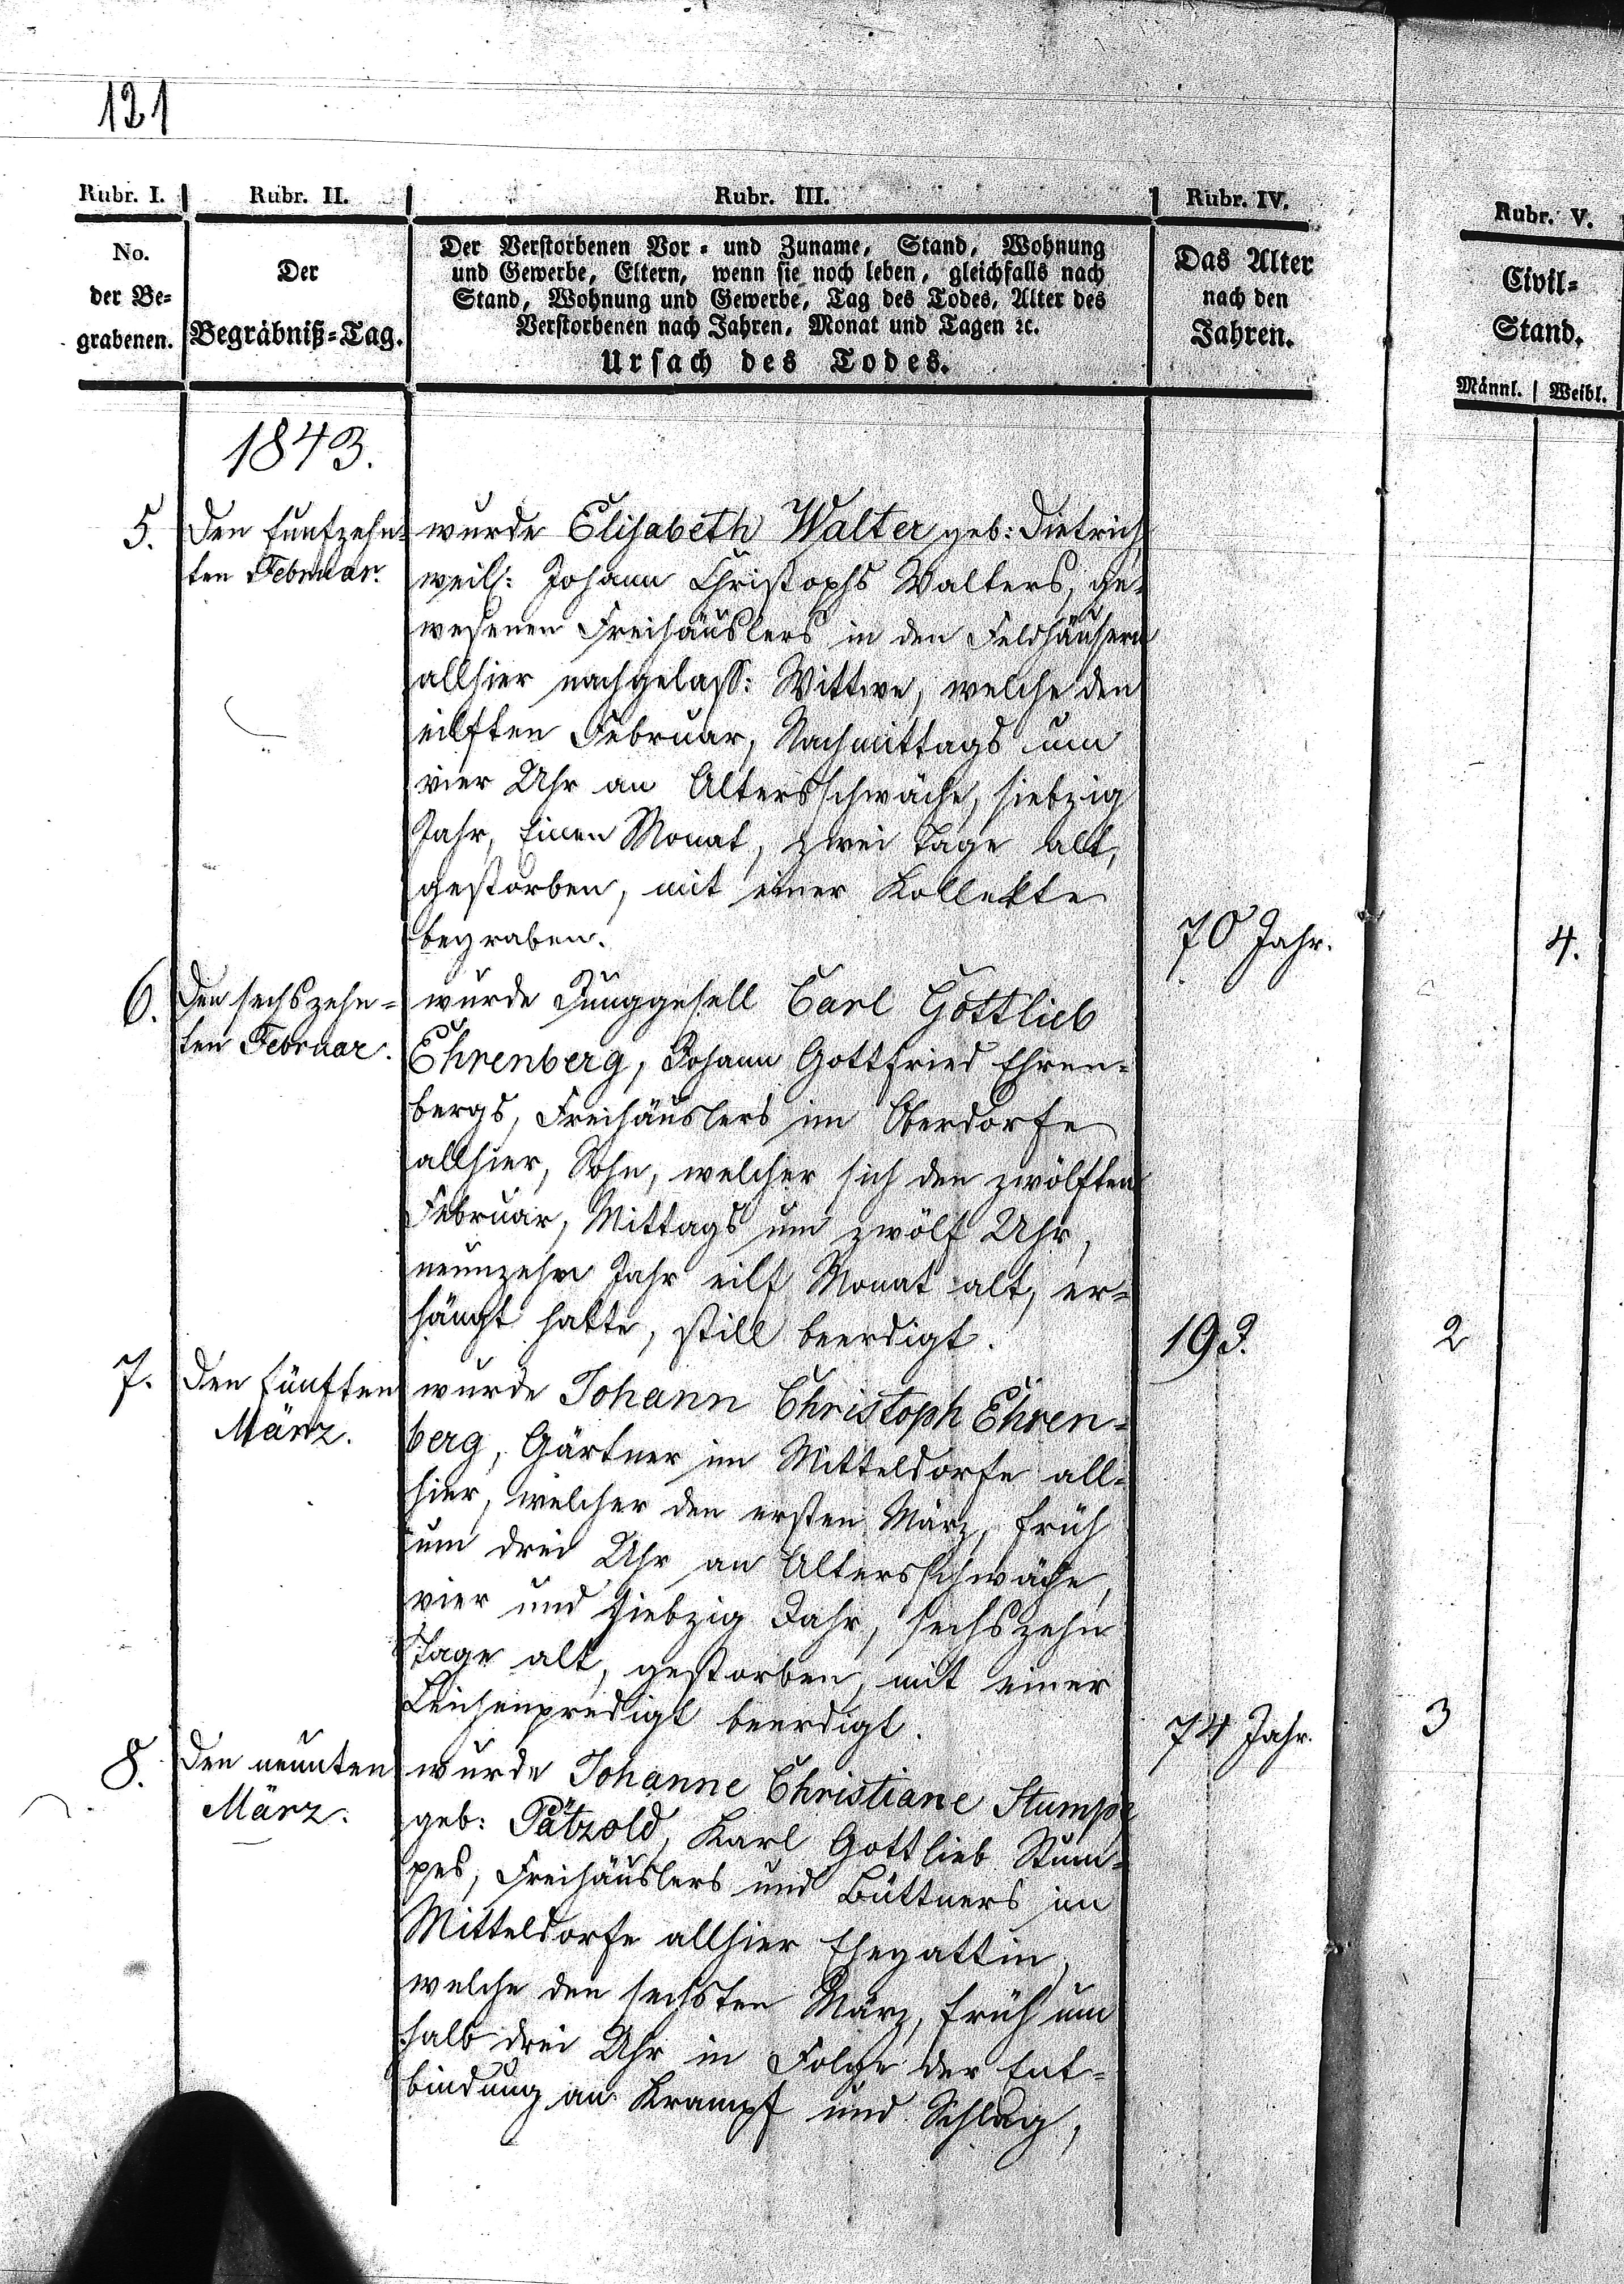 121
Rubr. I. Rubr. II. Rubr. III. Rubr. IV. Rubr. V.
No.
der Be-
grabenen.
Der
Begräbniß-Tag.
Der Verstorbenen Vor- und Zuname, Stand, Wohnung
und Gewerbe, Eltern, wenn sie noch leben, gleichfalls nach
Stand, Wohnung und Gewerbe, Tag des Todes, Alter des
Verstorbenen nach Jahren, Monat und Tagen ꝛc.
Ursach des Todes.
Das Alter
nach den
Jahren.
Civil-
Stand.
Männl. | Weibl.
1843.
5.
Den funfzehn-
ten Februar.
wurde Elisabeth Walter geb: Dietrich
weil: Johann Christophs Walters, ge-
wesenen Freihäuslers in den Feldhäusern
allhier nachgelass: Wittwe, welche den
eilften Februar, Nachmittags um
vier Uhr an Altersschwäche, siebzig
Jahr, Einen Monat, zwei Tage alt,
gestorben, mit einer Kollekte
begraben.
70 Jahr.
4.
6.
Den sechszehn-
ten Februar.
wurde Junggesell Carl Gottlieb
Ehrenberg, Johann Gottfried Ehren-
bergs, Freihäuslers im Oberdorfe
allhier, Sohn, welcher sich den zwölften
Februar, Mittags um zwölf Uhr,
neunzehn Jahr eilf Monat alt, er-
hängt hatte, still beerdigt.
19 J.
2
7.
Den fünften
März.
wurde Johann Christoph Ehren-
berg, Gärtner im Mitteldorfe all-
hier, welcher den ersten März, früh
um drei Uhr an Altersschwäche,
vier und siebzig Jahr, sechszehn
Tage alt, gestorben, mit einer
Leichenpredigt beerdigt.
74 Jahr.
3
8.
Den neunten
März.
wurde Johanne Christiane Stumpe
geb: Pätzold, Karl Gottlieb Stum-
pes, Freihäuslers und Büttners im
Mitteldorfe allhier Ehegattin,
welche den sechsten März, früh um
halb drei Uhr in Folge der Ent-
bindung an Krampf und Schlag,